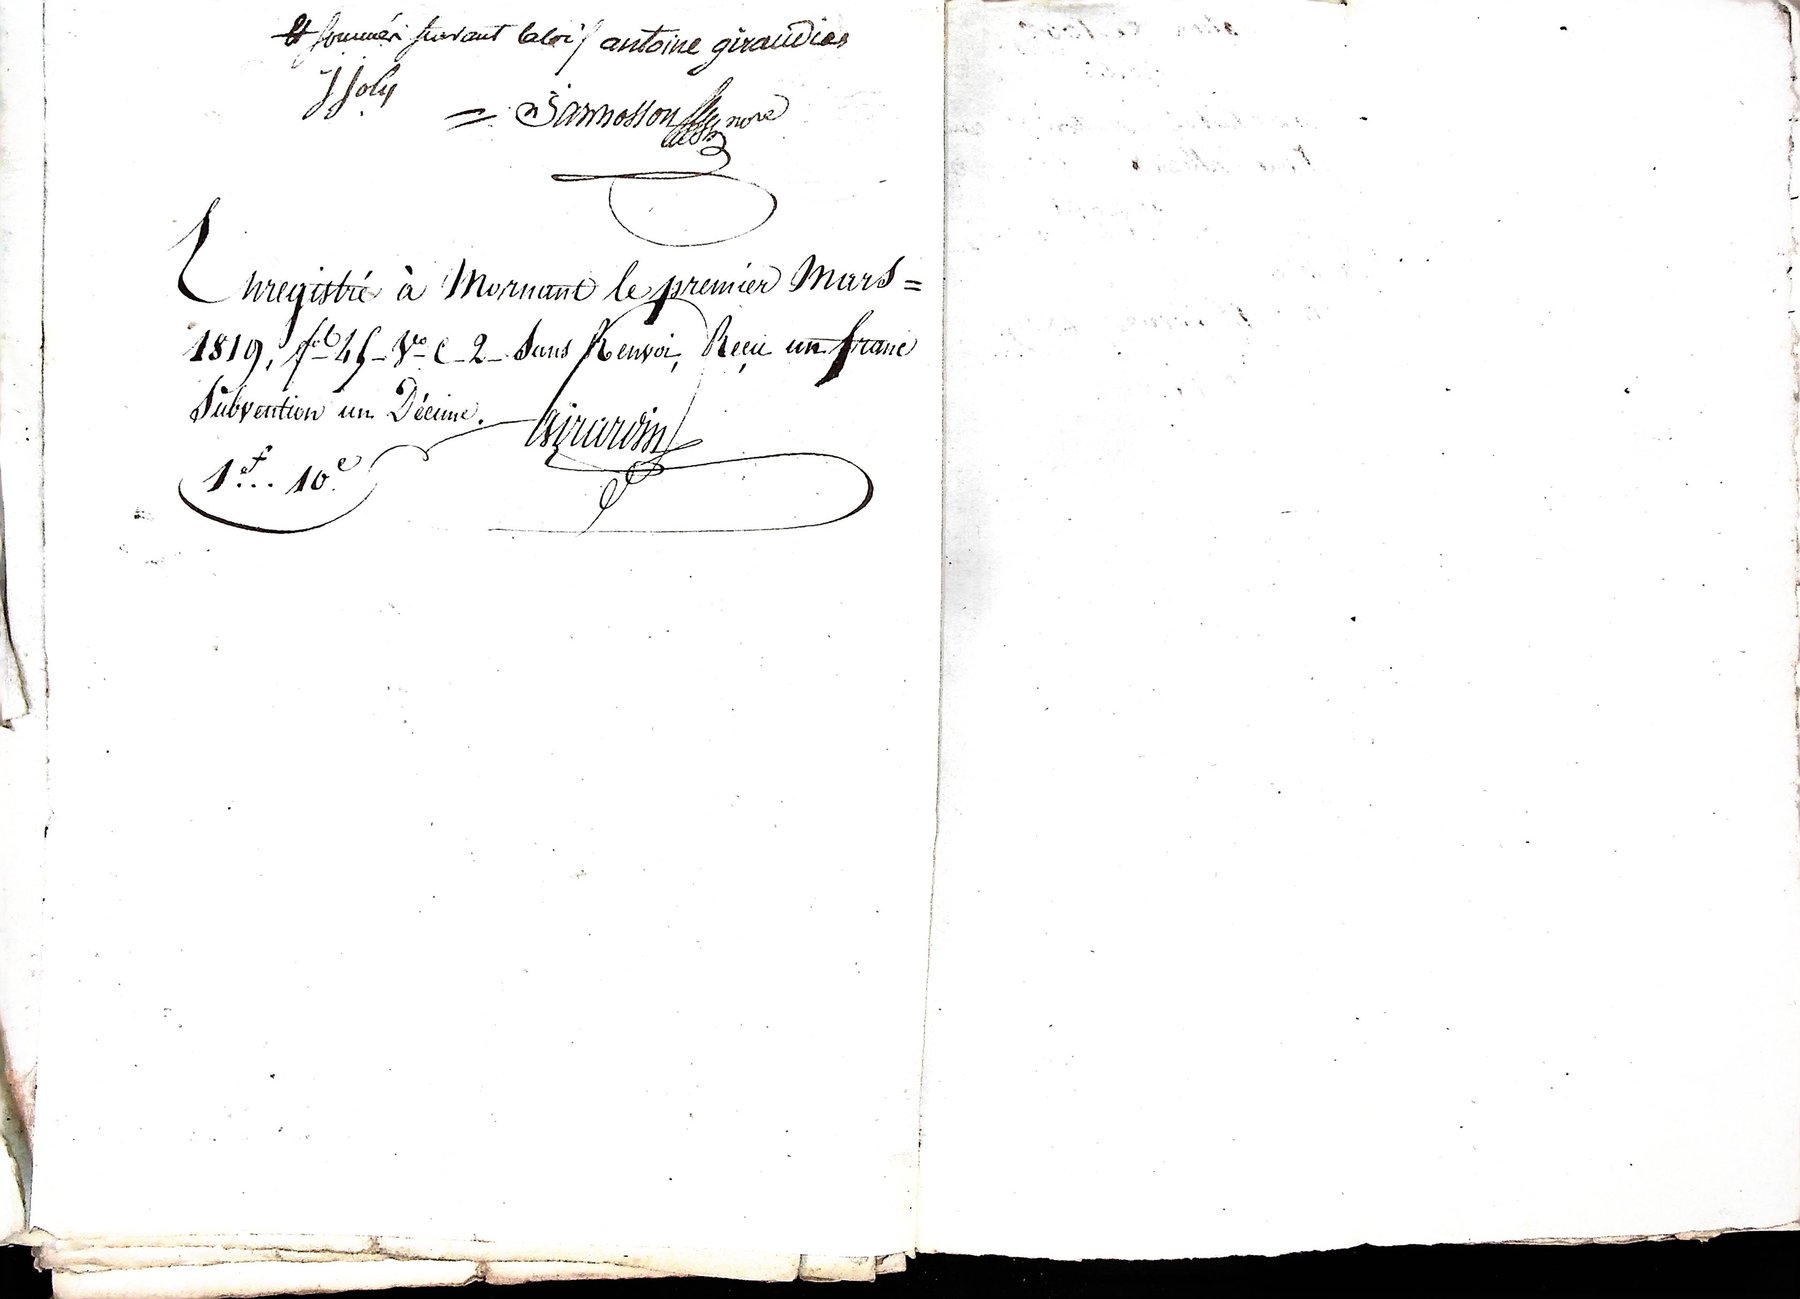 Et sommés suivant la loi / antoine giraudier
J Joly
= Jarnosson nore
Enregistré à Mornant le premier Mars =
1819, fo 45 Vo C 2 Sans Renvoi, Reçu un franc
Subvention un Décime. Girardin
1f... 10c